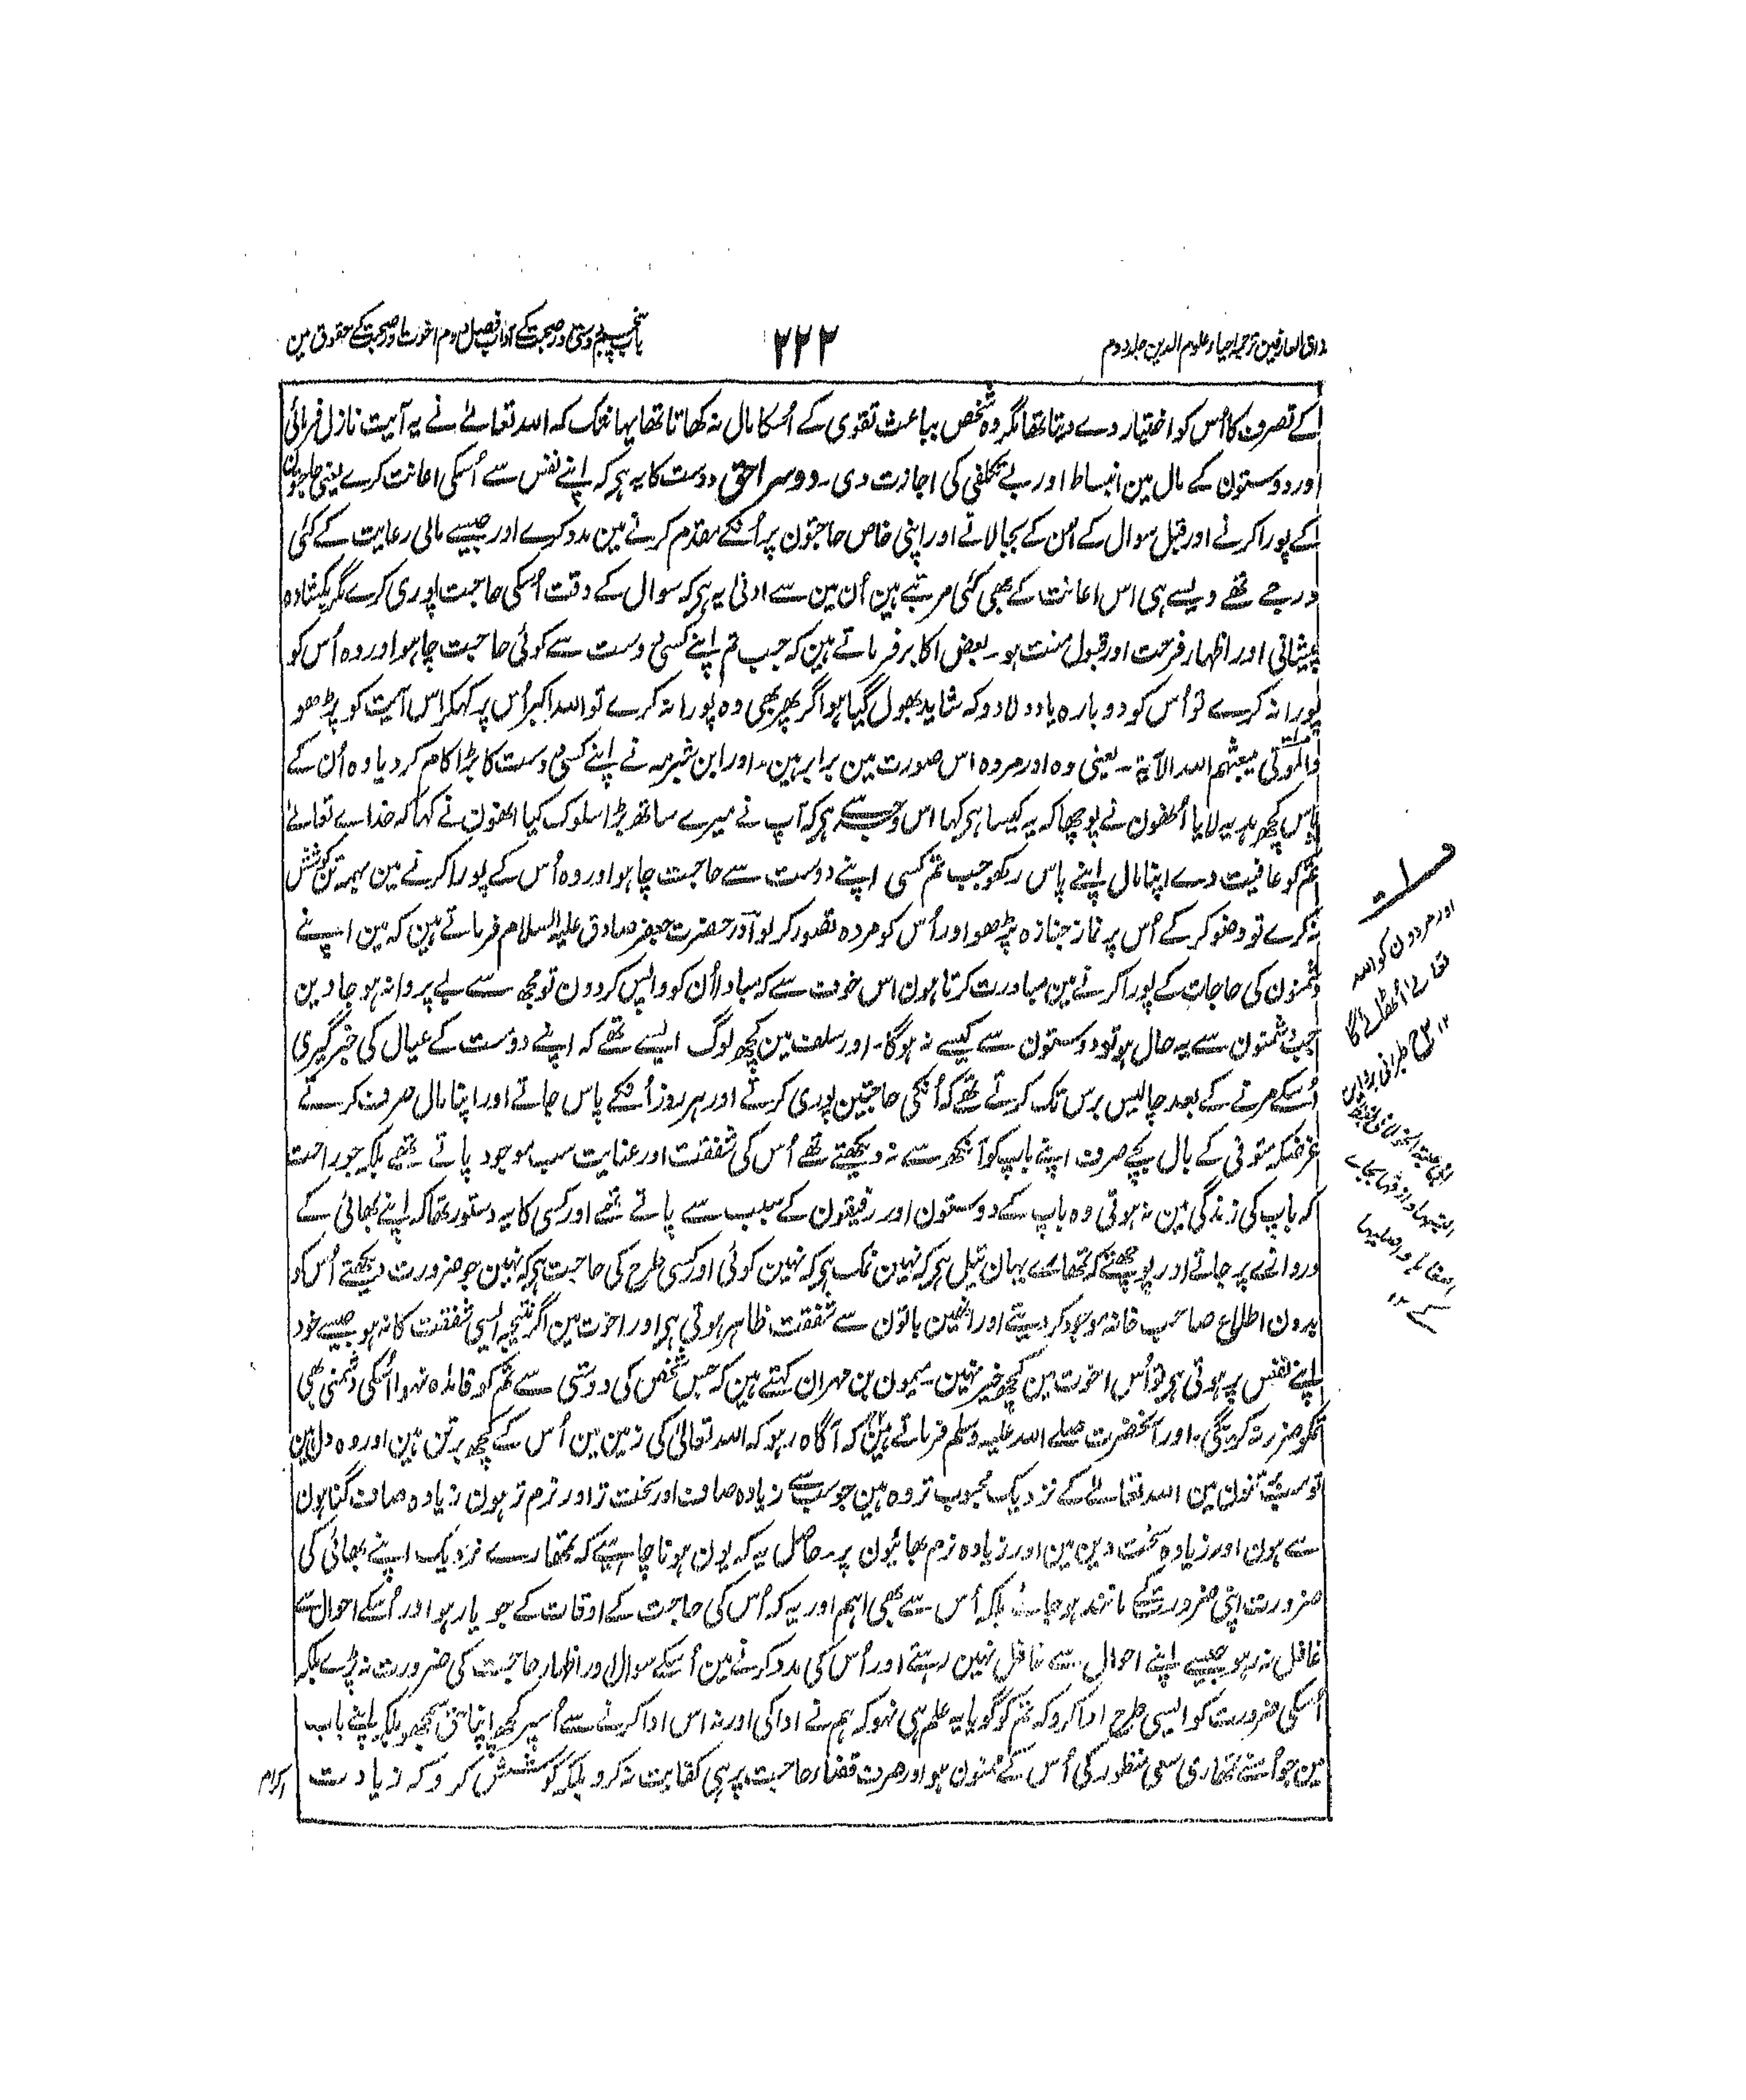 مذاق العارفین ترجمہ احیاء علوم الدین جلد دوم
۲۲۲
باب پنجم دوستی اور صحبت کے آداب فصل دوم اخوت اور صحبت کے حقوق مین
کے تصرف کا اُس کو اختیار دے دیتا تھا مگر وہ شخص بباعث تقوی کے اُسکا مال نہ کھاتا تھا یہانتک کہ اللہ تعالےٰ نے یہ آیت نازل فرمائی
اور دوستون کے مال مین انبساط اور بے تکلفی کی اجازت دی۔ دوسرا حق دوست کا یہ ہر کہ اپنے نفس سے اُسکی اعانت کرے یعنی حاجتون
کے پورا کرنے اور قبل سوال کے اُن کے بجا لانے اور اپنی خاص حاجتون پر اُنکے مقدم کرنے مین مدد کرے اور جیسے مالی رعایت کے کئی
درجے تھے ویسے ہی اس اعانت کے بھی کئی مرتبے ہین اُن مین سے ادنی یہ ہر کہ سوال کے وقت اُسکی حاجت پوری کرے مگر بکشادہ
پیشانی اور اظہار فرحت اور قبول منت ہو۔ بعض اکابر فرماتے ہین کہ جب تم اپنے کسی دوست سے کوئی حاجت چاہو اور وہ اُس کو
پورا نہ کرے تو اُس کو دوبارہ یاد دلادو کہ شاید بھول گیا ہو اگر پھر بھی وہ پورا نہ کرے تو اللہ اکبر اُس پر کہکر اس آیت کو پڑھو
وَالْمَوْتٰی یَبْعَثُہُم اللہ الآیۃ۔ یعنی وہ اور مردہ اس صورت مین برابر ہین۔ اور ابن شبرمہ نے اپنے کسی دوست کا بڑا کام کر دیا وہ اُن کے
پاس کچھ ہدیہ لایا اُنھون نے پوچھا کہ یہ کیسا ہر کہا اس وجہ سے ہر کہ آپ نے میرے ساتھ بڑا سلوک کیا انھون نے کہا کہ خداے تعالےٰ
تمکو عافیت دے اپنا مال اپنے پاس رکھو جب تم کسی اپنے دوست سے حاجت چاہو اور وہ اُس کے پورا کرنے مین ہمہ تن کوشش
نہ کرے تو وضو کر کے اُس پر نماز جنازہ پڑھو اور اُس کو مردہ تصور کر لو اور حضرت جعفر صادق علیہ السلام فرماتے ہین کہ مین اپنے
دشمنون کی حاجات کے پورا کرنے مین مبادرت کرتا ہون اس خوف سے کہ مبادا اُن کو واپس کردون تو مجھ سے بے پروا نہ ہو جاوین
جب دشمنون سے یہ حال ہو تو دوستون سے کیسے نہ ہوگا۔ اور سلف مین کچھ لوگ ایسے تھے کہ اپنے دوست کے عیال کی خبر گیری
اُسکے مرنے کے بعد چالیس برس تک کرتے تھے کہ اُنکی حاجتین پوری کرتے اور ہر روز اُنکے پاس جاتے اور اپنا مال صرف کرتے
غرضکہ متوفی کے بال بچے صرف اپنے باپ کو آنکھ سے نہ دیکھتے تھے اُس کی شفقت اور عنایت سب موجود پاتے تھے بلکہ جو راحت
کہ باپ کی زندگی مین نہ ہوتی وہ باپ کے دوستون اور رفیقون کے سبب سے پاتے تھے اور کسی کا یہ دستور تھا کہ اپنے بھائی کے
دروازے پر جاتے اور پوچھتے کہ تمھارے یہان تیل ہر کہ نہین نمک ہر کہ نہین کوئی اور کسی طرح کی حاجت ہر کہ نہین جو ضرورت دیکھتے اُس کو
بدون اطلاع صاحب خانہ موجود کر دیتے اور انھین باتون سے شفقت ظاہر ہوتی ہر اور اخوت مین اگر نتیجہ ایسی شفقت کا نہ ہو جیسے خود
اپنے نفس پر ہوتی ہر تو اُس اخوت مین کچھ خیر نہین۔ میمون بن مہران کہتے ہین کہ جس شخص کی دوستی سے تم کو فائدہ نہو اُسکی دشمنی بھی
تمکو ضرر نہ کریگی۔ اور آنحضرت صلے اللہ علیہ وسلم فرماتے ہین کہ آگاہ رہو کہ اللہ تعالیٰ کی زمین مین اُس کے کچھ برتن ہین اور وہ دل ہین
تو سب برتنون مین اللہ تعالےٰ کے نزدیک محبوب تر وہ ہین جو سب سے زیادہ صاف اور سخت تر اور نرم تر ہون زیادہ صاف گناہون
سے ہون اور زیادہ سخت دین مین اور زیادہ نرم بھائیون پر۔ حاصل یہ کہ یون ہونا چاہیے کہ تمھارے نزدیک اپنے بھائی کی
ضرورت اپنی ضرورت کے مانند ہو جائے بلکہ اُس سے بھی اہم اور یہ کہ اُس کی حاجت کے اوقات کے جویا رہو اور اُسکے احوال سے
غافل نہ رہو جیسے اپنے احوال سے غافل نہین رہتے اور اُس کی مدد کرنے مین اُسکے سوال اور اظہار حاجت کی ضرورت نہ پڑے بلکہ
اُسکی ضرورت کو ایسی طرح ادا کرو کہ تم کو گویا یہ علم ہی نہو کہ ہم نے ادا کی اور نہ اس ادا کرنے سے اُسپر کچھ اپنا حق سمجھو بلکہ اپنے باب
مین جو اُسنے تمھاری سعی منظور کی اُس کے ممنون ہو اور صرف قضاء حاجت پر ہی کفایت نہ کرو بلکہ کوشش کرو کہ زیادت
اکرام
اور مردون کو اللہ
تعالےٰ اُٹھائے گا
۱۲ طبرانی بروایت